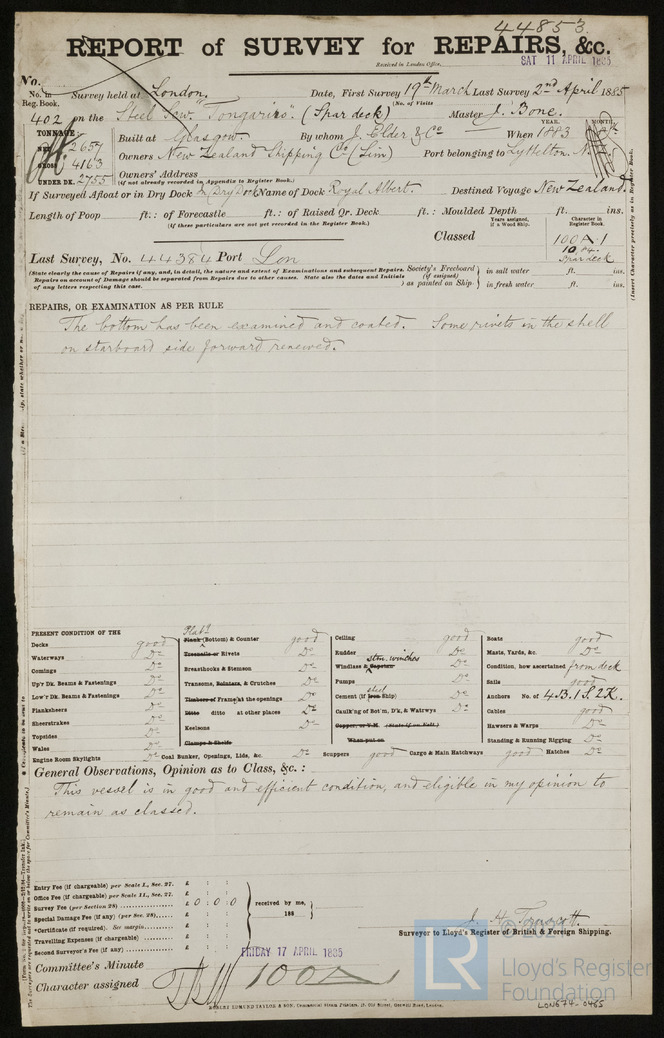 44853
REPORT of SURVEY for REPAIRS, &c.
Received in London Office, SAT 11 APRIL 1885
No.
No. in Reg. Book. Survey held at London. Date, First Survey 19th March Last Survey 2nd April 1885
(No. of Visits
402 on the Steel Scw. "Tongariro." (Spar deck) Master J. Bone.
TONNAGE
NET 2657
GROSS 4163
UNDER DK. 2755
Built at Glasgow. By whom J. Elder & Co When 1883
YEAR. MONTH.
Owners New Zealand Shipping Co. (Lim) Port belonging to Lyttelton. N.Z.
Owners' Address
(if not already recorded in Appendix to Register Book.)
If Surveyed Afloat or in Dry Dock In Dry Dock Name of Dock Royal Albert. Destined Voyage New Zealand.
Length of Poop ft.: of Forecastle ft.: of Raised Qr. Deck ft.: Moulded Depth ft. ins.
(if these particulars are not yet recorded in the Register Book.)
Years assigned, if a Wood Ship. Character in Register Book.
Classed 100A1
10,84.
Spar deck
Last Survey, No. 44384 Port Lon
(State clearly the cause of Repairs if any, and, in detail, the nature and extent of Examinations and subsequent Repairs. Repairs on account of Damage should be separated from Repairs due to other causes. State also the dates and Initials of any letters respecting this case.
Society's Freeboard (if assigned) as painted on Ship
in salt water ft. ins.
in fresh water ft. ins.
(Insert Character precisely as in Register Book.
REPAIRS, OR EXAMINATION AS PER RULE
The bottom has been examined and coated. Some rivets in the shell
on starboard side forward renewed.
PRESENT CONDITION OF THE
Decks good
Waterways Do
Comings Do
Upr. Dk. Beams & Fastenings Do
Lowr. Dk. Beams & Fastenings Do
Planksheers Do
Sheerstrakes Do
Topsides Do
Wales Do
Engine Room Skylights Do
Platg
Plank (Bottom) & Counter good
Treenails or Rivets Do
Breasthooks & Stemson Do
Transoms, Pointers, & Crutches Do
Timbers of Frame at the openings Do
Ditto ditto at other places Do
Keelsons Do
Clamps & Shelfs
Coal Bunker, Openings, Lids, &c. Do
Ceiling good
Rudder Do
stm. winches
Windlass & Capstan Do
Pumps Do
steel
Cement (if Iron Ship) Do
Caulk'ng of Bot'm, D'k, & Watrwys Do
Copper, or Y.M. (State if on Felt.)
When put on
Scuppers good Cargo & Main Hatchways good Hatches Do
Boats good
Masts, Yards, &c. Do
Condition, how ascertained from deck
Sails good
Anchors No. of 4B. 1S. 2K.
Cables good
Hawsers & Warps Do
Standing & Running Rigging Do
General Observations, Opinion as to Class, &c.:
This vessel is in good and efficient condition, and eligible in my opinion to
remain as classed.
Entry Fee (if chargeable) per Scale I., Sec. 27. £ : :
Office Fee (if chargeable) per Scale II., Sec. 27. £ : :
Survey Fee (per Section 28) £ 0 : 0 : 0
Special Damage Fee (if any) (per Sec. 28) £ : :
*Certificate (if required). See margin. £ : :
Travelling Expenses (if chargeable) £ : :
Second Surveyor's Fee (if any) £ : :
received by me,
188
Surveyor to Lloyd's Register of British & Foreign Shipping.
FRIDAY 17 APRIL 1885
Committee's Minute
Character assigned 100A1
ROBERT EDMUND TAYLOR & SON, Commercial Steam Printers, 19, Old Street, Goswell Road, London.
LR
Lloyd's Register
Foundation
LON674-0465